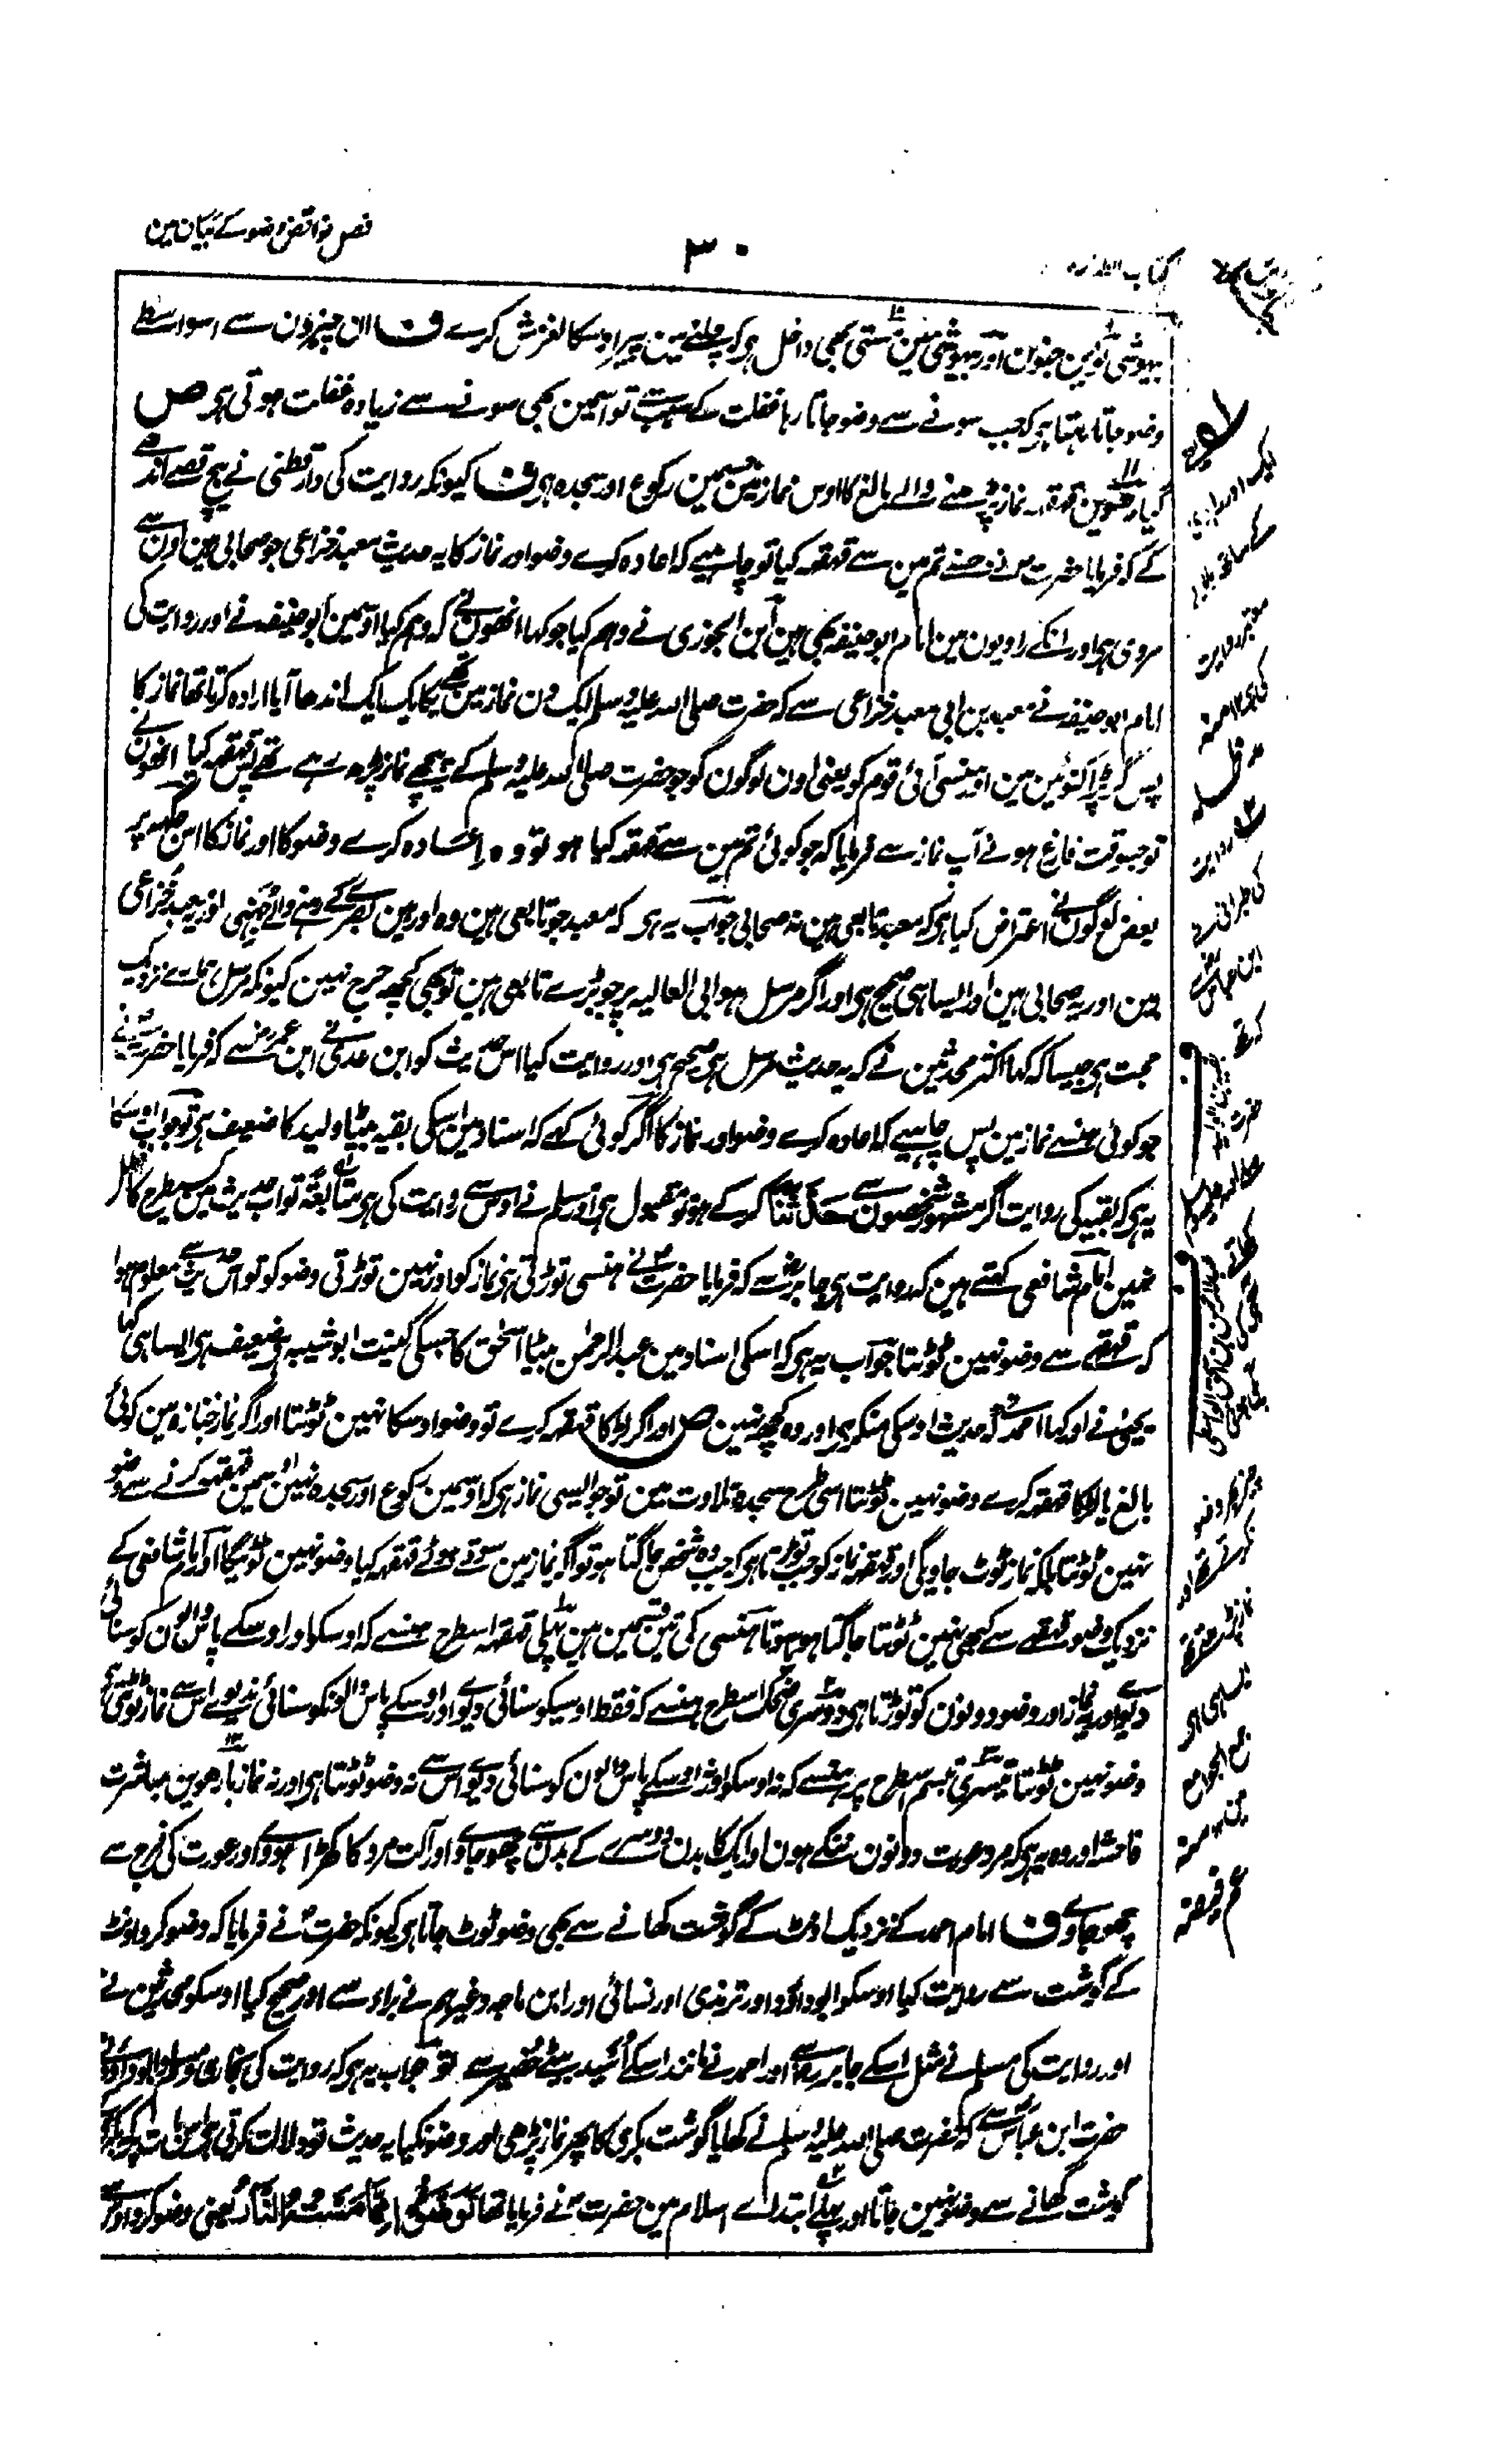 فصل نواقض وضو کے بیان مین
۳۰
کتاب الطہارہ
بیہوشی نوین جنون اور بیہوشی مین مستی بھی داخل ہی کہ چلنے مین پیر اوسکا لغزش کرے ف ان چیزون سے اسواسطے
وضو جاتا رہتا ہی کہ جب سونے سے وضو جاتا رہا غفلت کے سبب سے تو اسمین بھی سونے سے زیادہ غفلت ہوتی ہی ص
گیارھوین قہقہہ نماز پڑھنے والے بالغ کا اوس نماز مین جسمین رکوع اور سجدہ ہی ف کیونکہ روایت کی دارقطنی نے بیچ قصے اندھے
کے کہ فرمایا حضرت نے جسنے تم مین سے قہقہہ کیا تو چاہیے کہ اعادہ کرے وضو اور نماز کا یہ حدیث معبد خزاعی جو صحابی ہین اون سے
مروی ہی اور انکے راویون مین امام ابو حنیفہ بھی ہین ابن الجوزی نے وہم کیا جو کہا انھون نے کہ وہم کیا اوسمین ابو حنیفہ نے اور روایت کی
امام ابو حنیفہ نے معبد بن ابی معبد خزاعی سے کہ حضرت صلی اللہ علیہ وسلم ایک دن نماز مین تھے یکایک ایک اندھا آیا ارادہ کرتا تھا نماز کا
پس گر پڑا کنوئین مین اور ہنسی آئی قوم کو یعنی اون لوگون کو جو حضرت صلی اللہ علیہ وسلم کے پیچھے نماز پڑھ رہے تھے پس قہقہہ کیا انھون نے
توجسوقت فارغ ہوئے آپ نماز سے فرمایا کہ جو کوئی تم مین سے قہقہہ کیا ہو تو وہ اعادہ کرے وضو کا اور نماز کا اس حدیث پر
بعض لوگون نے اعتراض کیا ہی کہ معبد تابعی ہین نہ صحابی جواب یہ ہی کہ معبد جو تابعی ہین وہ اور ہین بصرے کے رہنے والے جہنی اور معبد خزاعی
ہین اور یہ صحابی ہین اور ایسا ہی صحیح ہی اور اگر مرسل ہو ابی العالیہ پر جو بڑے تابعی ہین تو بھی کچھ حرج نہین کیونکہ مرسل ہمارے نزدیک
حجت ہی جیسا کہ کہا اکثر محدثین نے کہ یہ حدیث مرسل ہی صحیح ہی اور روایت کیا اس حدیث کو ابن عدی نے ابن عمر سے کہ فرمایا حضرت نے
جو کوئی ہنسے نماز مین پس چاہیے کہ اعادہ کرے وضو اور نماز کا اگر کوئی کہے کہ اسناد مین اسکی بقیہ بیٹا ولید کا ضعیف ہی تو جواب اوسکا
یہ ہی کہ بقیہ کی روایت اگر مشہور شخصون سے حدثنا کرکے ہو تو مقبول ہی اور مسلم نے اوس سے روایت کی ہی متابعۃً تو اب حدیث مین کسی طرح کا خلل
نہین امام شافعی کہتے ہین کہ روایت ہی جابر سے کہ فرمایا حضرت نے ہنسی توڑتی ہی نماز کو اور نہین توڑتی وضو کو تو اس حدیث سے معلوم ہوا
کہ قہقہے سے وضو نہین ٹوٹتا جواب یہ ہی کہ اسکی اسناد مین عبد الرحمٰن بیٹا اسحٰق کا جسکی کنیت ابو شیبہ ہی ضعیف ہی ایسا ہی کہا
یحییٰ نے اور کہا احمد نے حدیث اوسکی منکر ہی اور وہ کچھ نہین ص اور اگر لڑکا قہقہہ کرے تو وضو اوسکا نہین ٹوٹتا اور اگر نماز جنازہ مین کوئی
بالغ یا لڑکا قہقہہ کرے وضو نہین ٹوٹتا اسی طرح سجدہ تلاوت مین تو جو ایسی نماز ہی کہ اوسمین رکوع اور سجدہ نہین اوسمین قہقہہ کرنے سے وضو
نہین ٹوٹتا بلکہ نماز ٹوٹ جاویگی اور قہقہہ نماز کو جب توڑتا ہی کہ جب وہ شخص جاگتا ہو تو اگر نماز مین سوتے ہوئے قہقہہ کیا وضو نہین ٹوٹیگا اور امام شافعی کے
نزدیک وضو قہقہے سے کبھی نہین ٹوٹتا جاگتا ہو یا سوتا ہنسی کی تین قسمین ہین پہلی قہقہہ اسطرح ہنسے کہ اوسکو اور اوسکے پاس والون کو سنائی
دیوے اور یہ نماز اور وضو دونون کو توڑتا ہی دوسری ضحک اسطرح ہنسے کہ فقط اوسیکو سنائی دیوے اور اوسکے پاس والونکو سنائی ندیوے اس سے نماز ٹوٹتی ہی
وضو نہین ٹوٹتا تیسری تبسم اسطرح پر ہنسے کہ نہ اوسکو اور نہ اوسکے پاس والون کو سنائی دیوے اس سے نہ وضو ٹوٹتا ہی اور نہ نماز بارھوین مباشرت
فاحشہ اور وہ یہ ہی کہ مرد عورت دونون ننگے ہون اور ایک کا بدن دوسرے کے بدن سے چھو جاوے اور آلت مرد کا کھڑا ہووے اور عورت کی فرج سے
چھو جاوے ف امام احمد کے نزدیک اونٹ کے گوشت کھانے سے بھی وضو ٹوٹ جاتا ہی کیونکہ حضرت نے فرمایا کہ وضو کرو اونٹ
کے گوشت سے روایت کیا اوسکو ابو داؤد اور ترمذی اور نسائی اور ابن ماجہ وغیرہم نے براء سے اور صحیح کیا اوسکو محدثین نے
اور روایت کی مسلم نے مثل اسکے جابر سے اور احمد نے مانند اسکے اُسید بیٹے حُضیر سے تو جواب یہ ہی کہ روایت کی بخاری و مسلم و ابو داؤد نے
حضرت ابن عباس سے کہ حضرت صلی اللہ علیہ وسلم نے کھایا گوشت بکری کا پھر نماز پڑھی اور وضو نکیا یہ حدیث تو دلالت کرتی ہی اس بات پر کہ
گوشت کھانے سے وضو نہین جاتا اور پہلے ابتداے اسلام مین حضرت نے فرمایا تھا تَوَضَّؤُا مِمَّا مَسَّتْهُ النَّارُ یعنی وضو کرو اوس سے